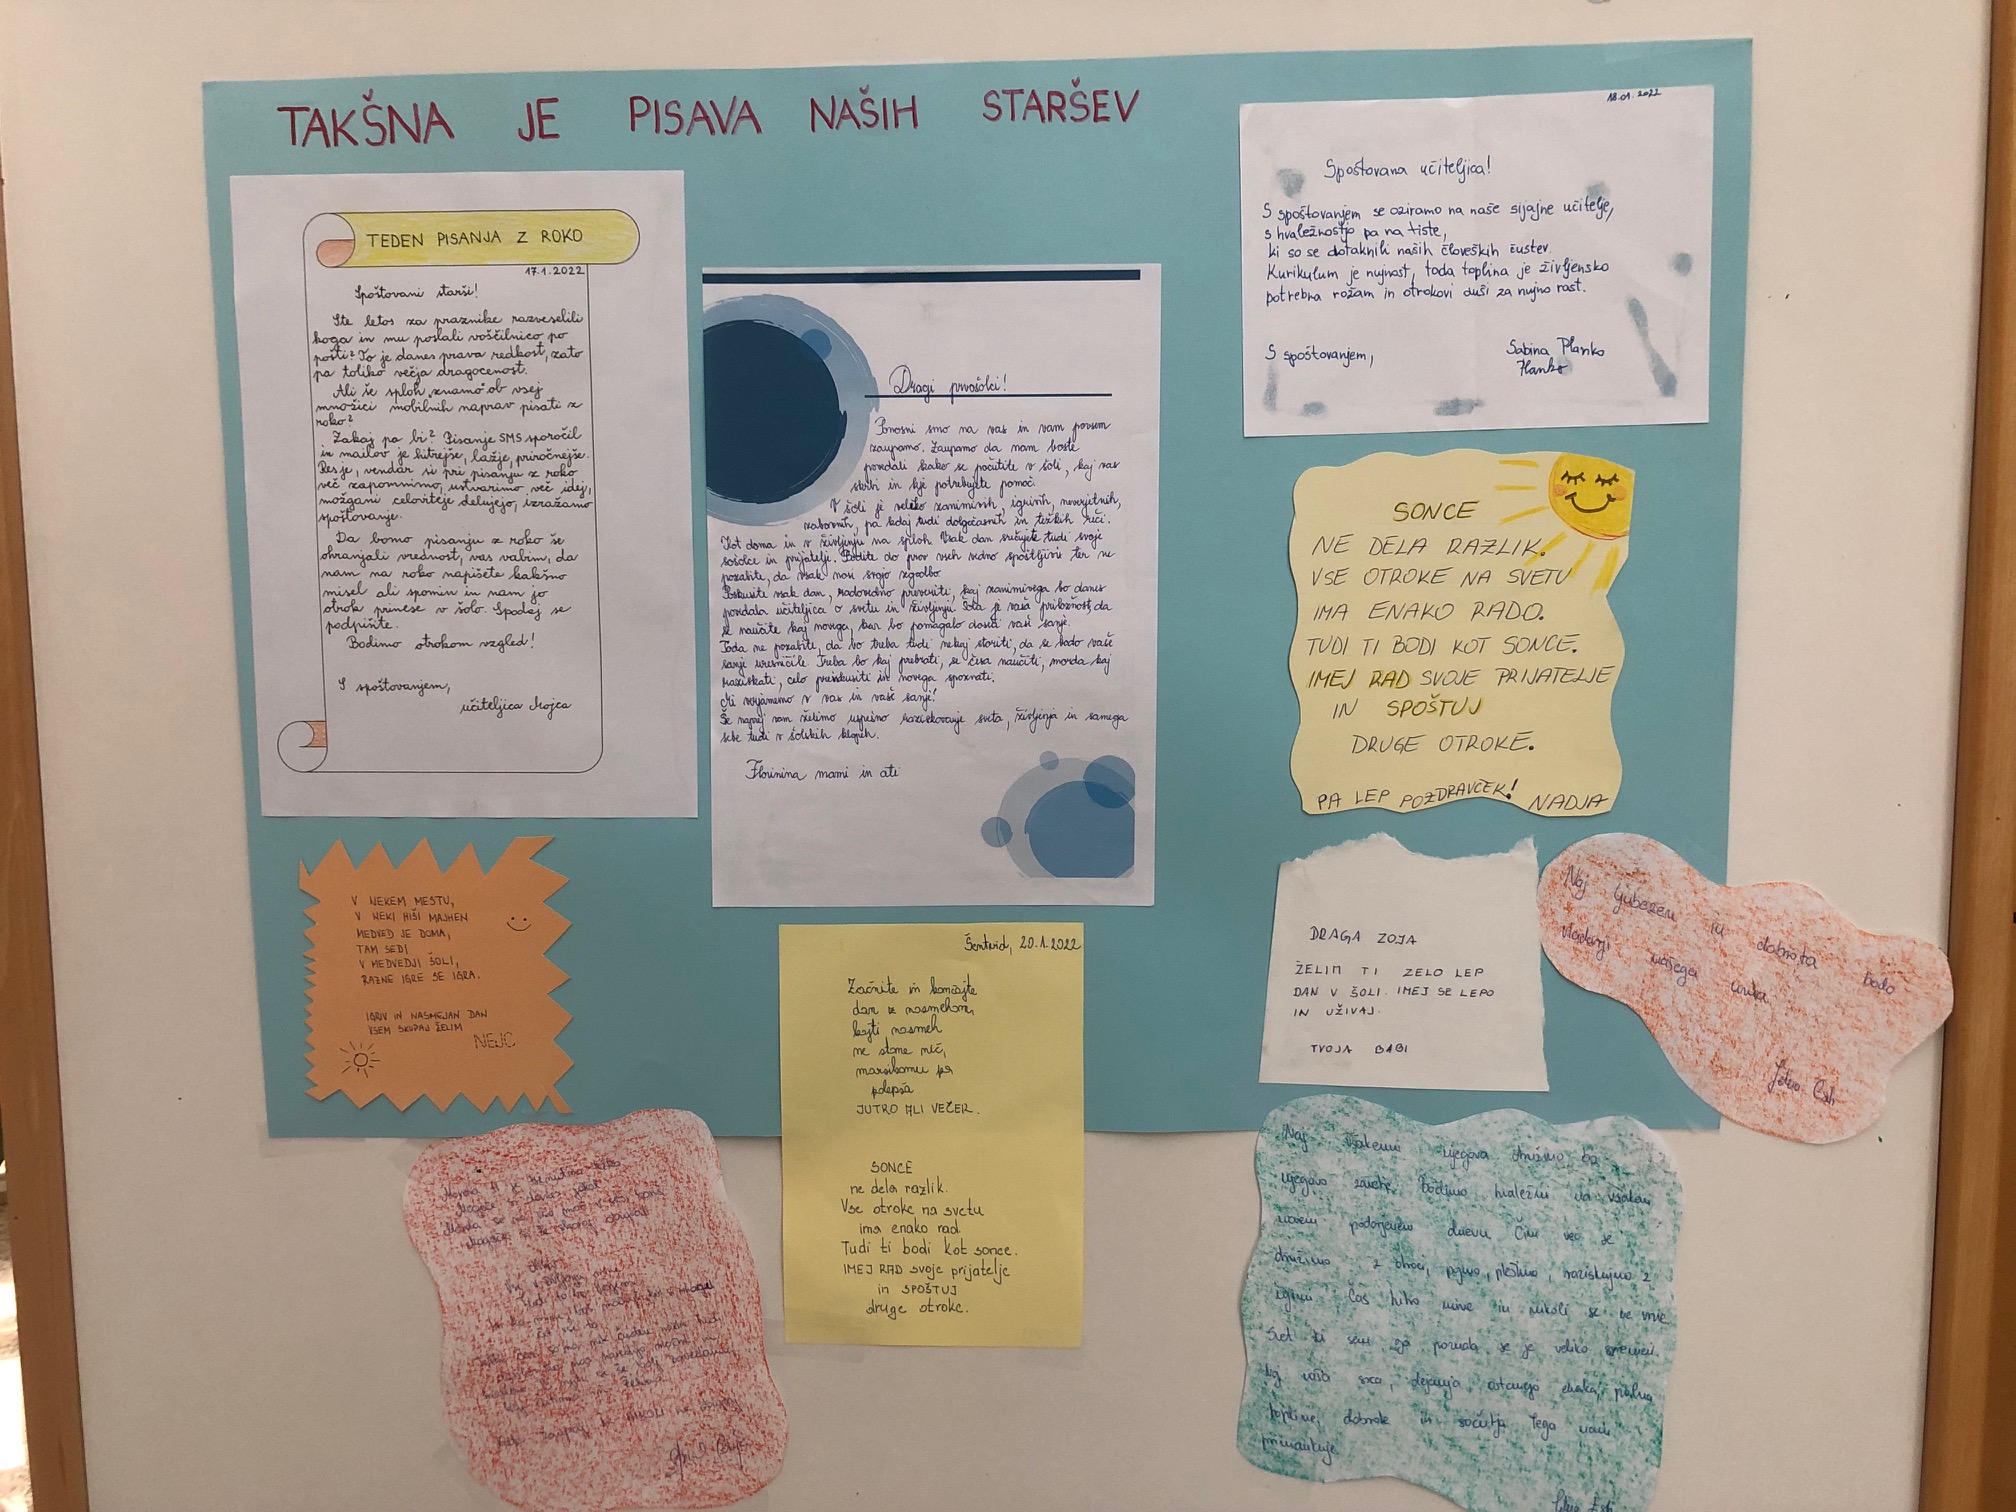 TAKŠNA JE PISAVA NAŠIH STARŠEV
TEDEN PISANJA Z ROKO
17.1.2022
Spoštovani starši!
Ste letos za praznike razveselili
koga in mu poslali voščilnico po
pošti? To je danes prava redkost, zato
pa toliko večja dragocenost.
Ali še sploh znamo ob vsej
množici mobilnih naprav pisati z
roko?
Zakaj pa bi? Pisanje SMS sporočil
in mailov je hitrejše, lažje, priročnejše.
Res je, vendar si pri pisanju z roko
več zapomnimo, ustvarimo več idej,
možgani celoviteje delujejo, izražamo
spoštovanje.
Da bomo pisanju z roko še
ohranjali vrednost, vas vabim, da
nam na roko napišete kakšno
misel ali spomin in nam jo
otrok prinese v šolo. Spodaj se
podpišite.
Bodimo otrokom vzgled!
S spoštovanjem,
učiteljica Mojca
Dragi prvošolci!
Ponosni smo na vas in vam povsem
zaupamo. Zaupamo da nam boste
povedali kako se počutite v šoli, kaj vas
skrbi in kje potrebujete pomoč.
V šoli je veliko zanimivih, igrivih, neverjetnih,
zabavnih, pa kdaj tudi dolgočasnih in težkih reči.
Kot doma in v življenju na sploh. Vsak dan srečujete tudi svoje
sošolce in prijatelje. Bodite do prav vseh vedno spoštljivi ter ne
pozabite, da vsak nosi svojo zgodbo.
Poskusite vsak dan, radovedno preveriti, kaj zanimivega bo danes
povedala učiteljica o svetu in življenju. Šola je vaša priložnost, da
se naučite kaj novega, kar bo pomagalo doseči vaše sanje.
Toda ne pozabite, da bo treba tudi nekaj storiti, da se bodo vaše
sanje uresničile. Treba bo kaj prebrati, se česa naučiti, morda kaj
raziskati, celo preizkusiti in novega spoznati.
Mi verjamemo v vas in vaše sanje!
Še naprej vam želimo uspešno raziskovanje sveta, življenja in samega
sebe tudi v šolskih klopeh.
Florinina mami in ati
18.01.2022
Spoštovana učiteljica!
S spoštovanjem se oziramo na naše sijajne učitelje,
s hvaležnostjo pa na tiste,
ki so se dotaknili naših človeških čustev.
Kurikulum je nujnost, toda toplina je življensko
potrebna rožam in otrokovi duši za nujno rast.
S spoštovanjem,
Sabina Planko
Planko
SONCE
NE DELA RAZLIK.
VSE OTROKE NA SVETU
IMA ENAKO RADO.
TUDI TI BODI KOT SONCE.
IMEJ RAD SVOJE PRIJATELJE
IN SPOŠTUJ
DRUGE OTROKE.
PA LEP POZDRAVČEK! NADJA
V NEKEM MESTU,
V NEKI HIŠI MAJHEN
MEDVED JE DOMA,
TAM SEDI
V MEDVEDJI ŠOLI,
RAZNE IGRE SE IGRA.
IGRIV IN NASMEJAN DAN
VSEM SKUPAJ ŽELIM
NEJC
Šentvid, 20.1.2022
Začnite in končajte
dan z nasmehom,
kajti nasmeh
ne stane nič,
marsikomu pa
polepša
JUTRO ALI VEČER.
SONCE
ne dela razlik.
Vse otroke na svetu
ima enako rad.
Tudi ti bodi kot sonce.
IMEJ RAD svoje prijatelje
in SPOŠTUJ
druge otroke.
DRAGA ZOJA
ŽELIM TI ZELO LEP
DAN V ŠOLI. IMEJ SE LEPO
IN UŽIVAJ.
TVOJA BABI
Naj ljubezen in dobrota bodo
vladarji našega uma
Naj vsakemu njegova družina bo
njegovo zavetje. Bodimo hvaležni za vsakim
novem podarjenem dnevu. Čim več se
družimo z otroci, pojmo, plešimo, raziskujmo z
igrami. Čas hitro mine in nikoli se ne vrne.
Svet ki sem ga poznala se je veliko spremenil.
Naj vaša srca, dejanja, ostanejo enaka, polna
topline, dobrote in sočutja tega nam
primankuje